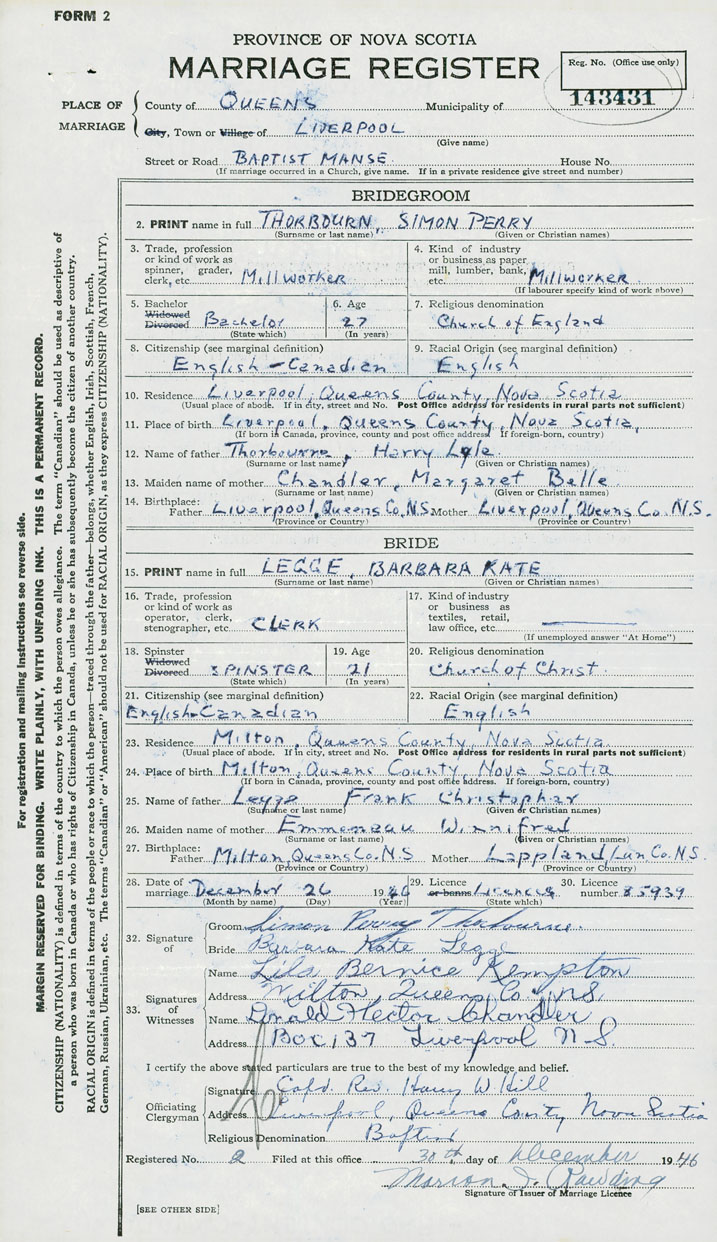 FORM 2
PROVINCE OF NOVA SCOTIA
MARRIAGE REGISTER
Reg. No. (Office use only)
143431
PLACE OF MARRIAGE
County of QUEENS Municipality of
City, Town or Village of LIVERPOOL
(Give name)
Street or Road BAPTIST MANSE. House No.
(If marriage occurred in a Church, give name. If in a private residence give street and number)
BRIDEGROOM
2. PRINT name in full THORBOURN, SIMON PERRY
(Surname or last name) (Given or Christian names)
3. Trade, profession or kind of work as spinner, grader, clerk, etc. Millworker
4. Kind of industry or business as paper mill, lumber, bank, etc. Millworker
(If labourer specify kind of work above)
5. Bachelor Widowed Divorced Bachelor
(State which)
6. Age 27
(In years)
7. Religious denomination
Church of England
8. Citizenship (see marginal definition)
English-Canadian
9. Racial Origin (see marginal definition)
English
10. Residence Liverpool, Queens County, Nova Scotia
(Usual place of abode. If in city, street and No. Post Office address for residents in rural parts not sufficient)
11. Place of birth Liverpool, Queens County, Nova Scotia,
(If born in Canada, province, county and post office address. If foreign-born, country)
12. Name of father Thorbourne, Harry Lyle
(Surname or last name) (Given or Christian names)
13. Maiden name of mother Chandler, Margaret Belle
(Surname or last name) (Given or Christian names)
14. Birthplace: Father Liverpool, Queens Co. N.S. Mother Liverpool, Queens Co. N.S.
(Province or Country) (Province or Country)
BRIDE
15. PRINT name in full LEGGE, BARBARA KATE
(Surname or last name) (Given or Christian names)
16. Trade, profession or kind of work as operator, clerk, stenographer, etc. CLERK
17. Kind of industry or business as textiles, retail, law office, etc.
(If unemployed answer "At Home")
18. Spinster Widowed Divorced SPINSTER
(State which)
19. Age 21
(In years)
20. Religious denomination
Church of Christ
21. Citizenship (see marginal definition)
English-Canadian
22. Racial Origin (see marginal definition)
English
23. Residence Milton, Queens County, Nova Scotia
(Usual place of abode. If in city, street and No. Post Office address for residents in rural parts not sufficient)
24. Place of birth Milton, Queens County, Nova Scotia
(If born in Canada, province, county and post office address. If foreign-born, country)
25. Name of father Legge Frank Christopher
(Surname or last name) (Given or Christian names)
26. Maiden name of mother Emmeneau Winnifred
(Surname or last name) (Given or Christian names)
27. Birthplace: Father Milton, Queens Co. N.S Mother Lappland Lun Co. N.S.
(Province or Country) (Province or Country)
28. Date of marriage December 26 1946
(Month by name) (Day) (Year)
29. Licence or banns Licence
(State which)
30. Licence number 85939
32. Signature of
Groom Simon Perry Thorbourne.
Bride Barbara Kate Legge
33. Signatures of Witnesses
Name Lila Bernice Kempton
Address Milton, Queens Co., N.S.
Name Donald Hector Chandler
Address Box 137 Liverpool N.S.
I certify the above stated particulars are true to the best of my knowledge and belief.
Officiating Clergyman
Signature Capt. Rev. Harry W Hill
Address Liverpool, Queens County Nova Scotia
Religious Denomination Baptist
Registered No. 2 Filed at this office 30th day of December 1946
Signature of Issuer of Marriage Licence
[SEE OTHER SIDE]
For registration and mailing instructions see reverse side.
MARGIN RESERVED FOR BINDING. WRITE PLAINLY, WITH UNFADING INK. THIS IS A PERMANENT RECORD.
CITIZENSHIP (NATIONALITY) is defined in terms of the country to which the person owes allegiance. The term "Canadian" should be used as descriptive of
a person who was born in Canada or who has rights of Citizenship in Canada, unless he or she has subsequently become the citizen of another country.
RACIAL ORIGIN is defined in terms of the people or race to which the person—traced through the father—belongs, whether English, Irish, Scottish, French,
German, Russian, Ukrainian, etc. The terms "Canadian" or "American" should not be used for RACIAL ORIGIN, as they express CITIZENSHIP (NATIONALITY).